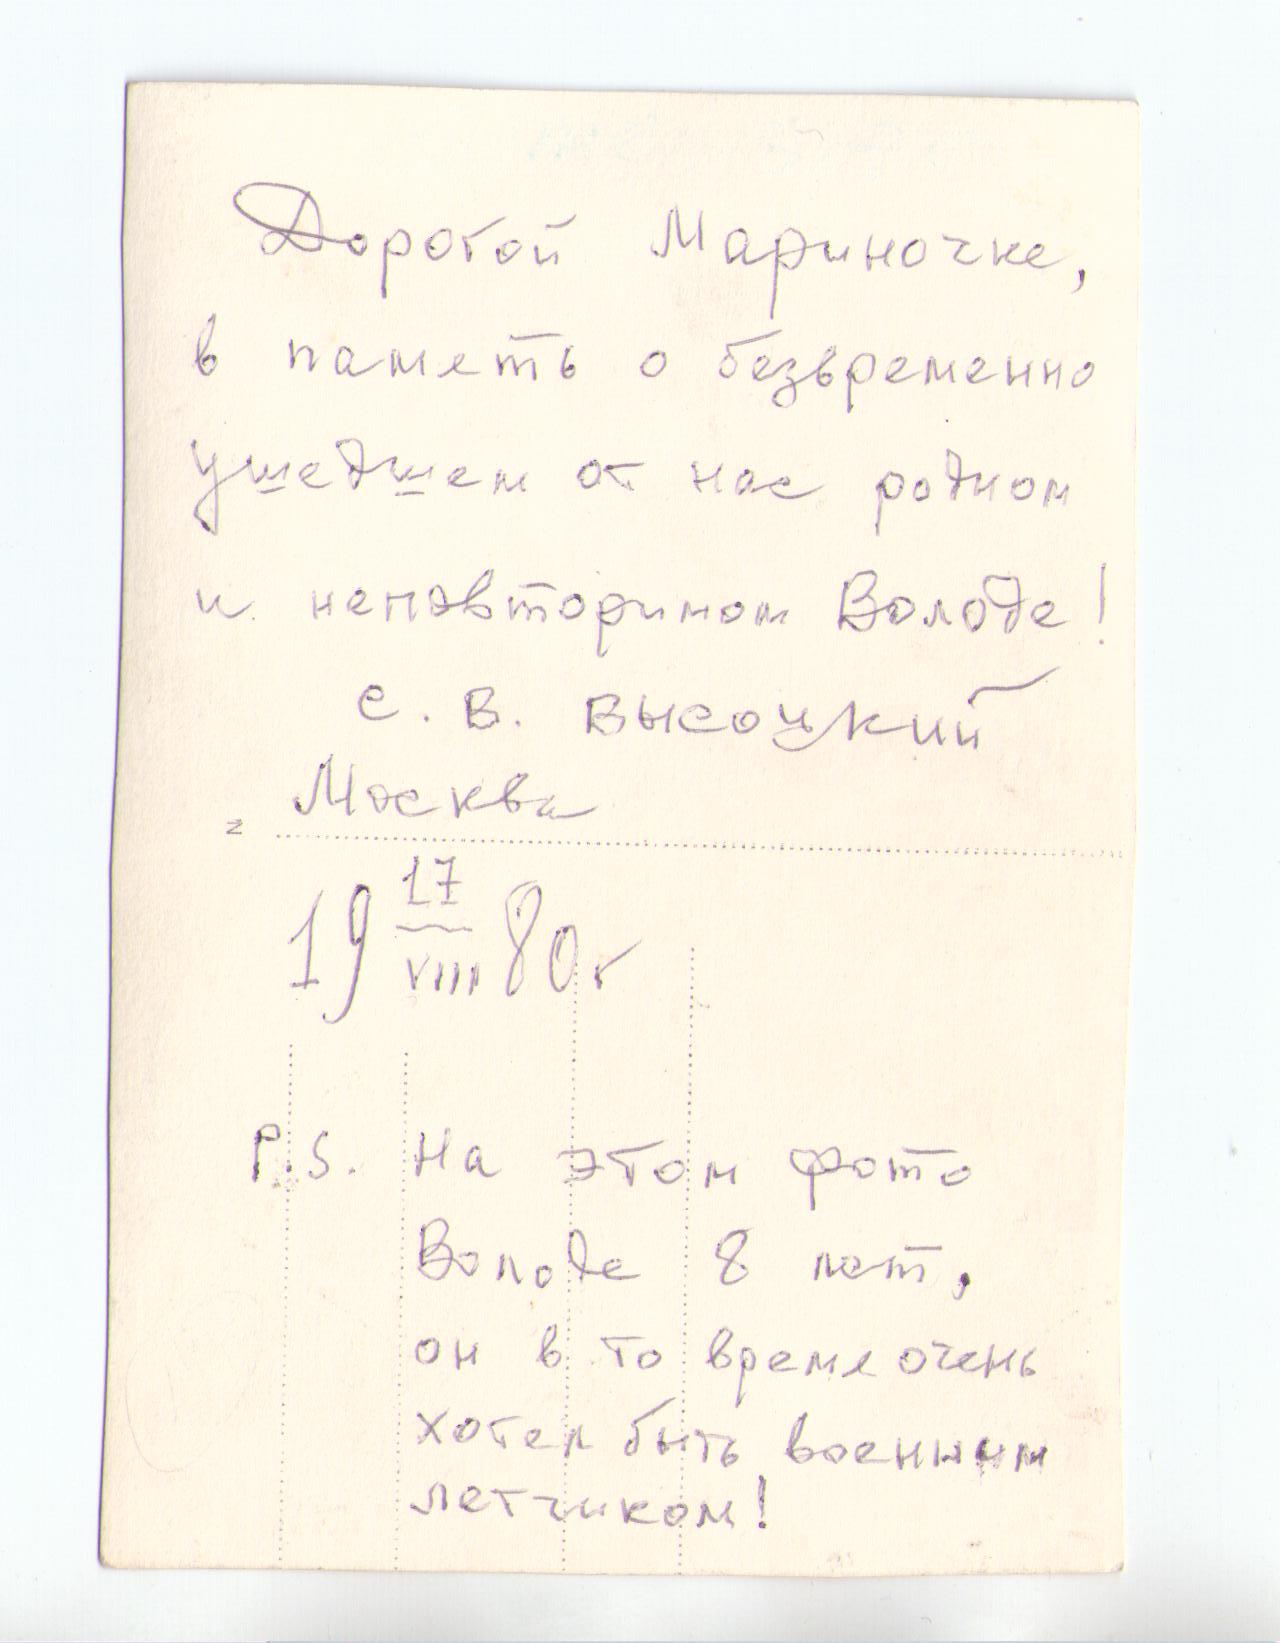 Дорогой Мариночке,
в память о безвременно
ушедшем от нас родном
и неповторимом Володе!
С. В. Высоцкий
Москва
19 17/VIII 80 г
P.S. На этом фото
Володе 8 лет,
он в то время очень
хотел быть военным
летчиком!